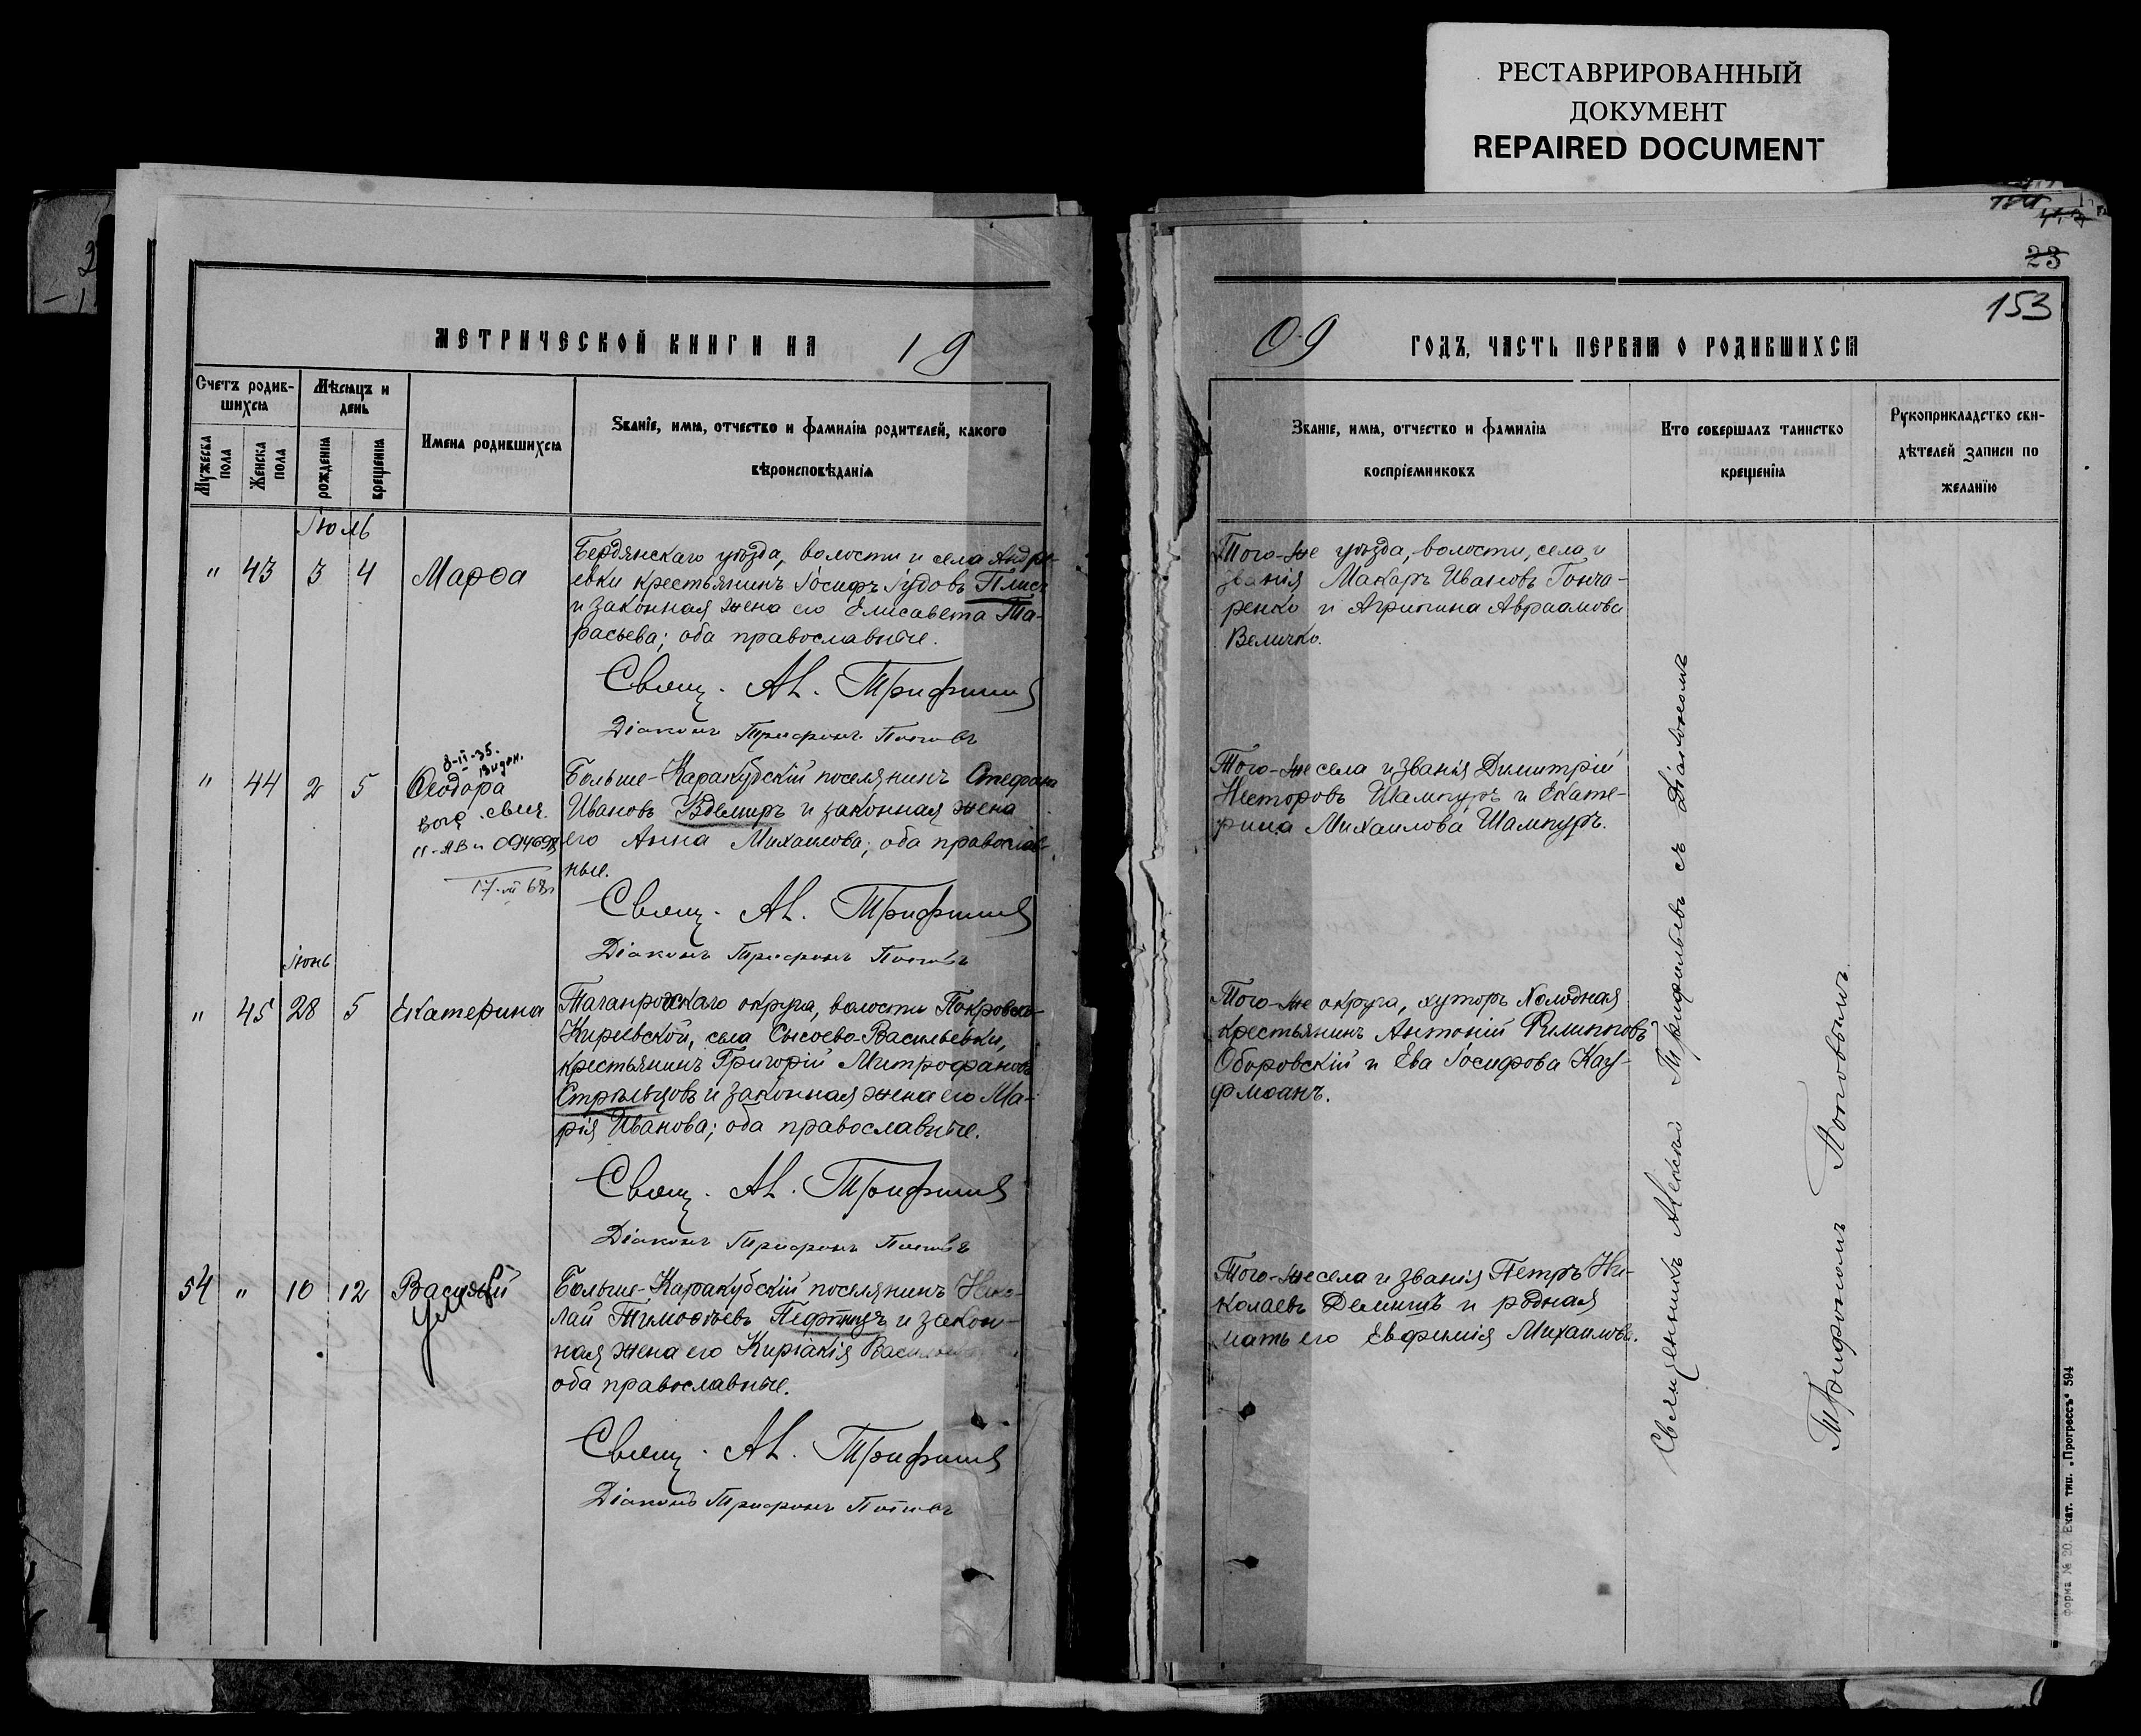 РЕСТАВРИРОВАННЫЙ
ДОКУМЕНТ
REPAIRED DOCUMENT
23
153
МЕТРИЧЕСКОЙ КНИГИ НА 19
09 ГОДЪ, ЧАСТЬ ПЕРВАЯ О РОДИВШИХСЯ
Счетъ родив-
шихся
Мѣсяцъ и
день
Мужеска
пола
Женска
пола
рожденія
крещенія
Имена родившихся
Званіе, имя, отчество и фамилія родителей, какого
вѣроисповѣданія
Званіе, имя, отчество и фамилія
воспріемниковъ
Кто совершалъ таинство
крещенія
Рукоприкладство сви-
дѣтелей записи по
желанію
Іюль
" 43 3 4 Марѳа
Бердянскаго уѣзда, волости и села Андре-
евки крестьянинъ Іосифъ Іудовъ Плисъ
и законная жена его Елисавета Та-
расьева; оба православные.
Свящ. Ал. Трифильевъ
Діаконъ Трифонъ Поповъ
Того-же уѣзда, волости, села и
званія Макаръ Ивановъ Гонча-
ренко и Агрипина Авраамова
Величко.
8-II-35.
Видан.
" 44 2 5 Ѳеодора
свид.
094698
17. VII 68
Больше-Каракубскій поселянинъ Стефанъ
Ивановъ и законная жена
его Анна Михаилова; оба православ-
ные.
Свящ. Ал. Трифильевъ
Діаконъ Трифонъ Поповъ
Того-же села и званія Димитрій
Несторовъ Шампуръ и Екате-
рина Михаилова Шампуръ.
Іюнь
" 45 28 5 Екатерина
Таганрогскаго округа, волости Покровско-
Кирѣевской, села Сысоево-Васильевки,
крестьянинъ Григорій Митрофановъ
Стрѣльцовъ и законная жена его Ма-
рія Иванова; оба православные.
Свящ. Ал. Трифильевъ
Діаконъ Трифонъ Поповъ
Того-же округа, хуторъ Холодная
крестьянинъ Антоній Филипповъ
Оборовскій и Ева Іосифова Кау-
фманъ.
54 " 10 12 Василій
умеръ
Больше-Каракубскій поселянинъ Нико-
лай Тимоѳеевъ и закон-
ная жена его Киріакія
оба православные.
Свящ. Ал. Трифильевъ
Діаконъ Трифонъ Поповъ
Того-же села и званія Петръ Ни-
колаевъ и родная
мать его Евфимія Михаилова.
Священникъ Алексій Трифильевъ съ Діакономъ
Трифономъ Поповымъ
форма № 20. Екат. тип. „Прогрессъ" 594